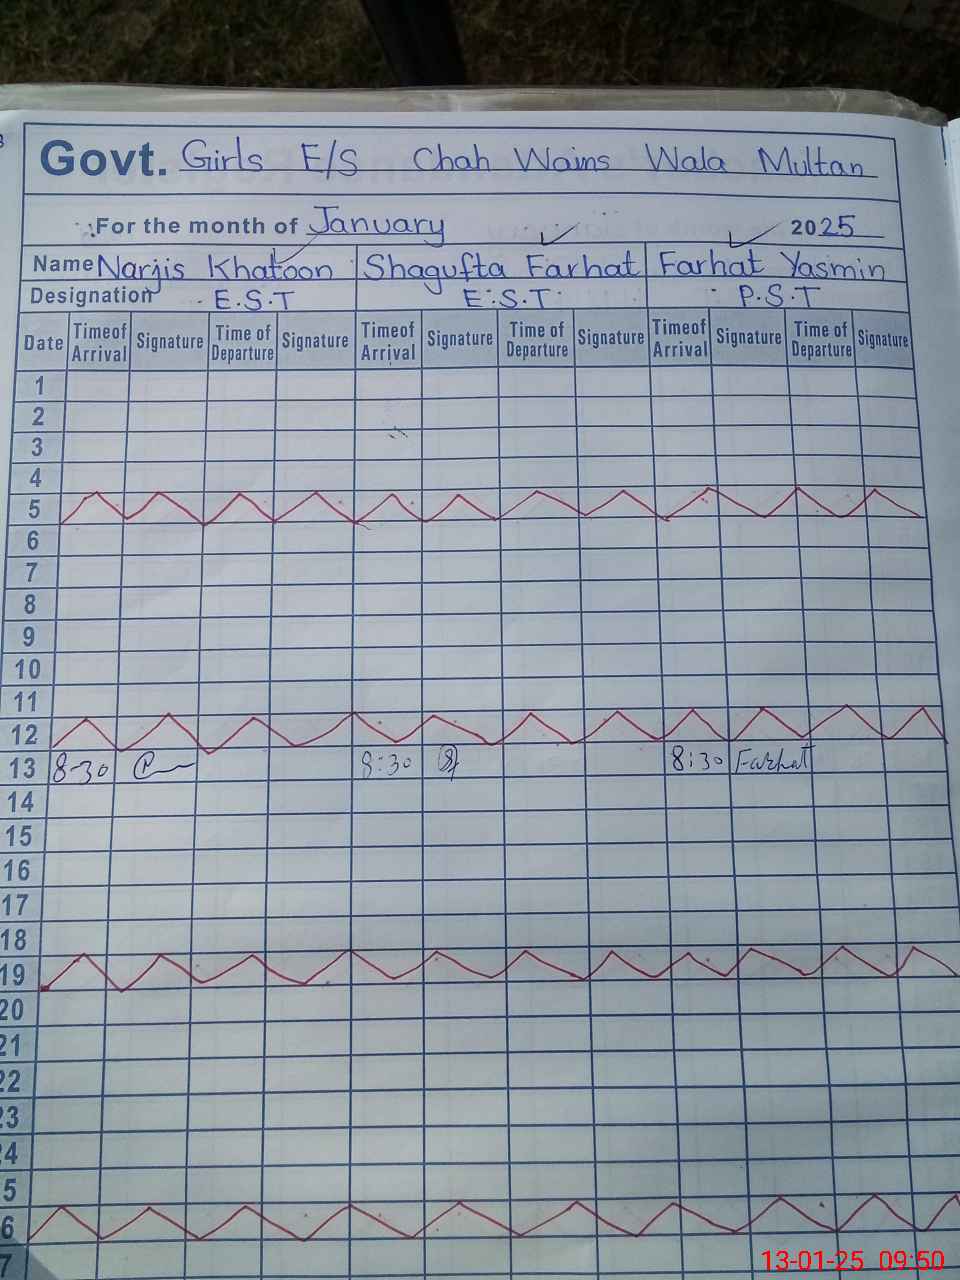 Govt. Girls E/S Chah Wains Wala Multan
For the month of January 2025
Name Narjis Khatoon Shagufta Farhat Farhat Yasmin
Designation E.S.T E.S.T P.S.T
Date Time of Arrival Signature Time of Departure Signature Time of Arrival Signature Time of Departure Signature Time of Arrival Signature Time of Departure Signature
1
2
3
4
5
6
7
8
9
10
11
12
13 8-30 8:30 8:30 Farhat
14
15
16
17
18
19
20
21
22
23
24
5
6
7
13-01-25 09:50